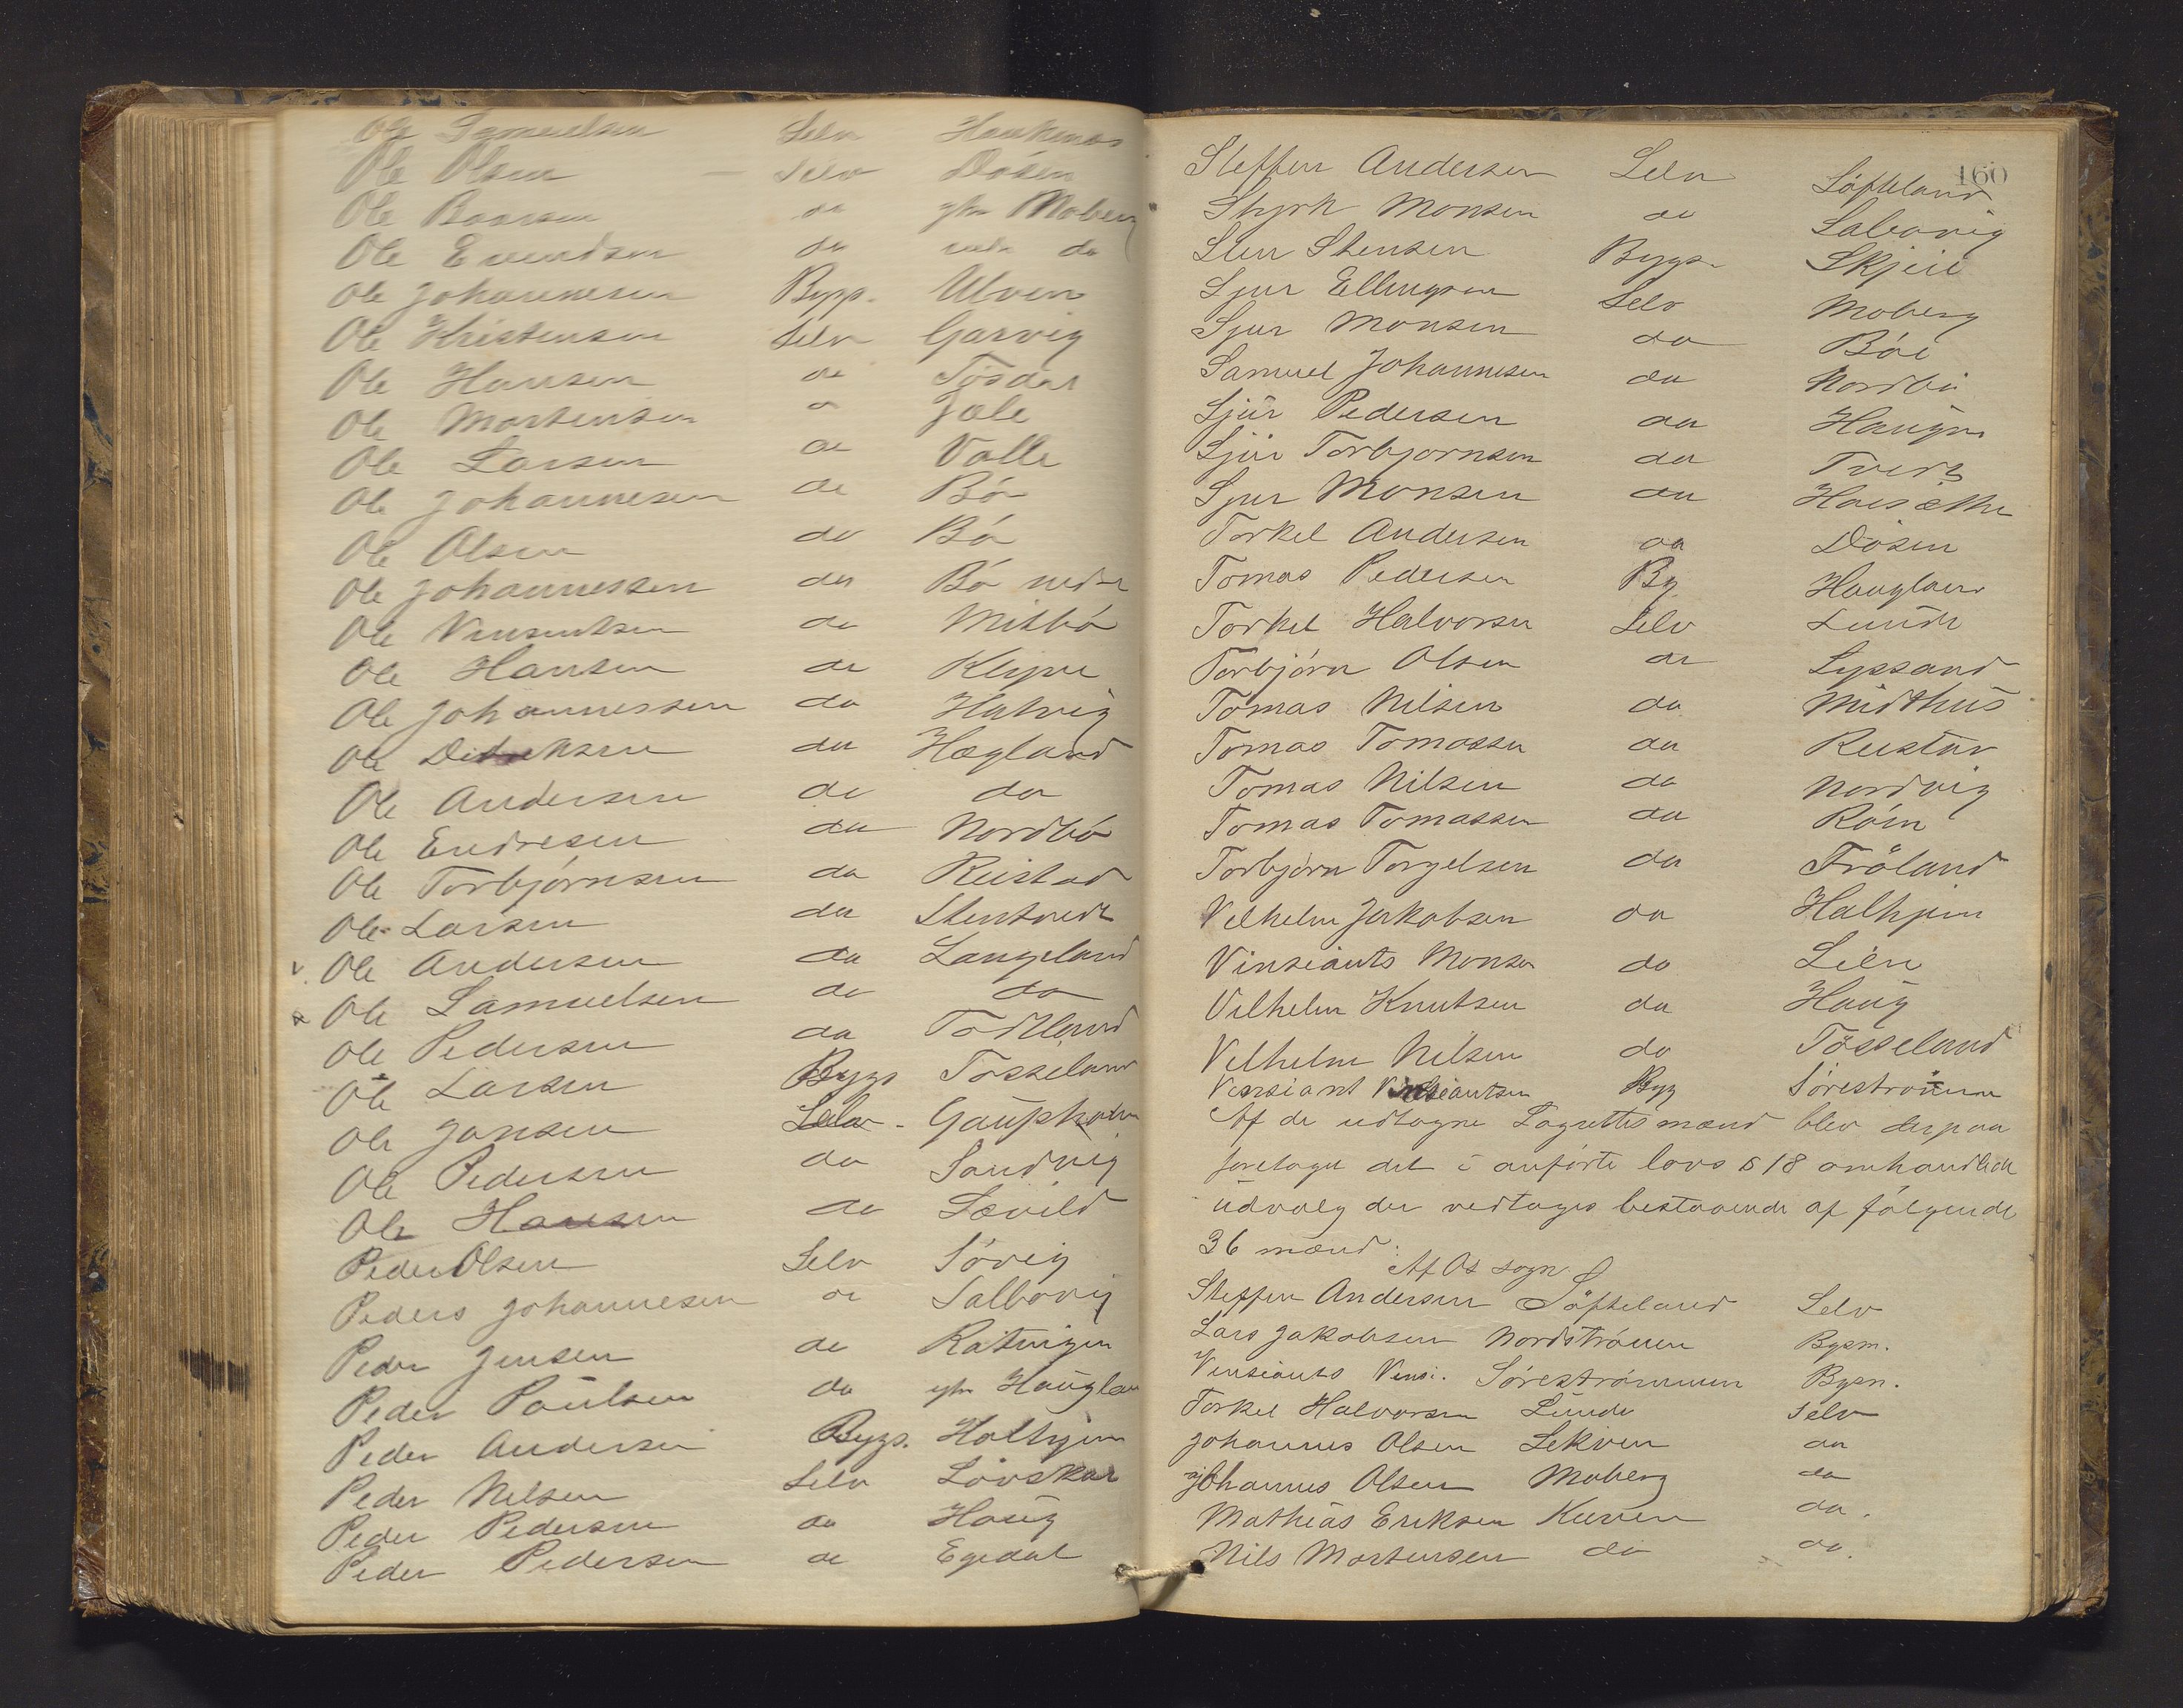 Ole Samuelsen Selv Haukenæs
Ole Olsen — Selv Døsen
Ole Baarsen do ytre Moberg
Ole Evendsen do do
Ole Johannesen Bygs. Ulven
Ole Kristensen Selv Garvig
Ole Hansen do Tøsdal
Ole Mortensen do Jæle
Ole Larsen do Valle
Ole Johannesen do Bø
Ole Olsen do Bø
Ole Johannessen do Bø nedre
Ole Vinsentsen do Mitbø
Ole Hansen do Kleppe
Ole Johannessen do Hatvig
Ole Didriksen do Hægland
Ole Andersen do do
Ole Endresen do Nordbø
Ole Torbjørnsen do Reistad
Ole Larsen do Stentvedt
Ole Andersen do Langeland
Ole Samuelsen do do
Ole Pedersen do Todtland
Ole Larsen Bygs Tøsseland
Ole Jansen Selv - Gaupholm
Ole Pedersen do Sandvig
Ole Hansen do Sævild
Peder Olsen Selv Søvig
Peders Johannesen do Salbovig
Peder Jensen do Røtingen
Peder Paulsen do ytre Hauglan
Peder Andersen Bygs. Halhjem
Peder Nilsen Selv Løvskar
Peder Pedersen do Haug
Peder Pedersen do Egedal
160
Steffen Andersen Selv Søfteland
Styrk Monsen do Salbovig
Sten Stensen Bygs. Skjeie
Sjur Ellingsen Selv Moberg
Sjur Monsen do Bøe
Samuel Johannesen do Nordbø
Sjur Pedersen do Haugen
Sjur Torbjornsen do Tveit
Sjur Monsen do Havsætthe
Torkel Andersen do Døsen
Tomas Pedersen By Hauglan
Torkel Halvorsen Selv Lunde
Torbjørn Olsen do Lyssand
Tomas Nilsen do Midthus
Tomas Tomassen do Reistad
Tomas Nilsen do Nordvig
Tomas Tomassen do Røen
Torbjørn Torgelsen do Frøland
Vilhelm Jakobsen do Halhjem
Vinsiants Monsen do Lien
Vilhelm Knutsen do Haug
Vilhelm Nilsen do Tøsseland
Vinsiant Vinsiantsen Byg Sørestrømmen
Af de udtagne Lagrettesmænd blev derpaa
foretaget det i anførte lovs § 18 omhandlede
udvalg der vedtoges bestaaende af følgende
36 mænd:
Af Os sogn.
Steffen Andersen Søfteland Selv
Lars Jakobsen Nordstrømen Bygsm.
Vinsiants Vinsi. Sørestrømmen Bygsm.
Torkel Halvorsen Lunde Selv
Johannes Olsen Lekven do
Johannes Olsen Moberg do
Mathias Eriksen Kuven do.
Nils Mortensen do do.